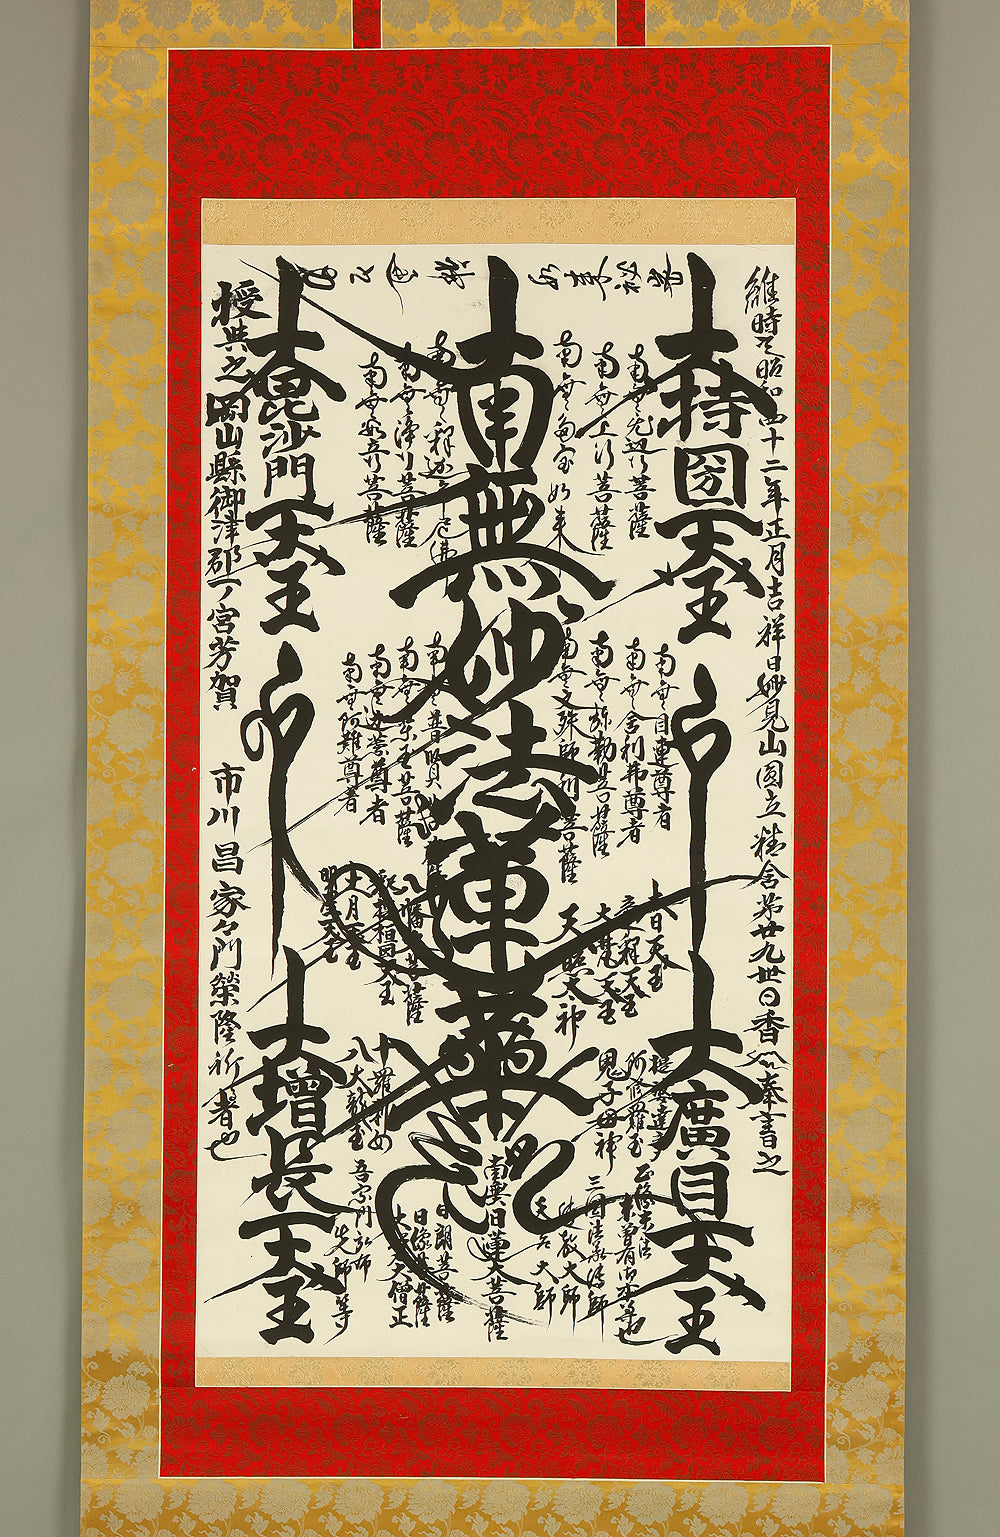 維時昭和四十二年正月吉祥日妙見山圓立精舍第廿九世日香奉書之
大持国天王
大廣目天王
南無無邊行菩薩
南無上行菩薩
南無多宝如来
南無妙法蓮華経
南無釋迦牟尼佛
南無淨行菩薩
南無安立行菩薩
南無目連尊者
南無舍利弗尊者
南無弥勒菩薩
南無文殊師利菩薩
南無普賢菩薩
南無薬王菩薩
南無迦葉尊者
南無阿難尊者
大日天王
帝釋天王
大梵天王
天照太神
八幡大菩薩
大月天王
明星天子
提婆達多
阿修羅王
鬼子母神
十羅刹女
八大龍王
正像末法
未曽有御本尊也
三國法流傳師
傳教大師
天台大師
南無日蓮大菩薩
日朗菩薩
日像菩薩
大覚大僧正
吾宗門弘布
先師等
大毘沙門天王
大増長天王
授與之岡山縣御津郡一宮芳賀
市川昌家々門榮隆祈者也